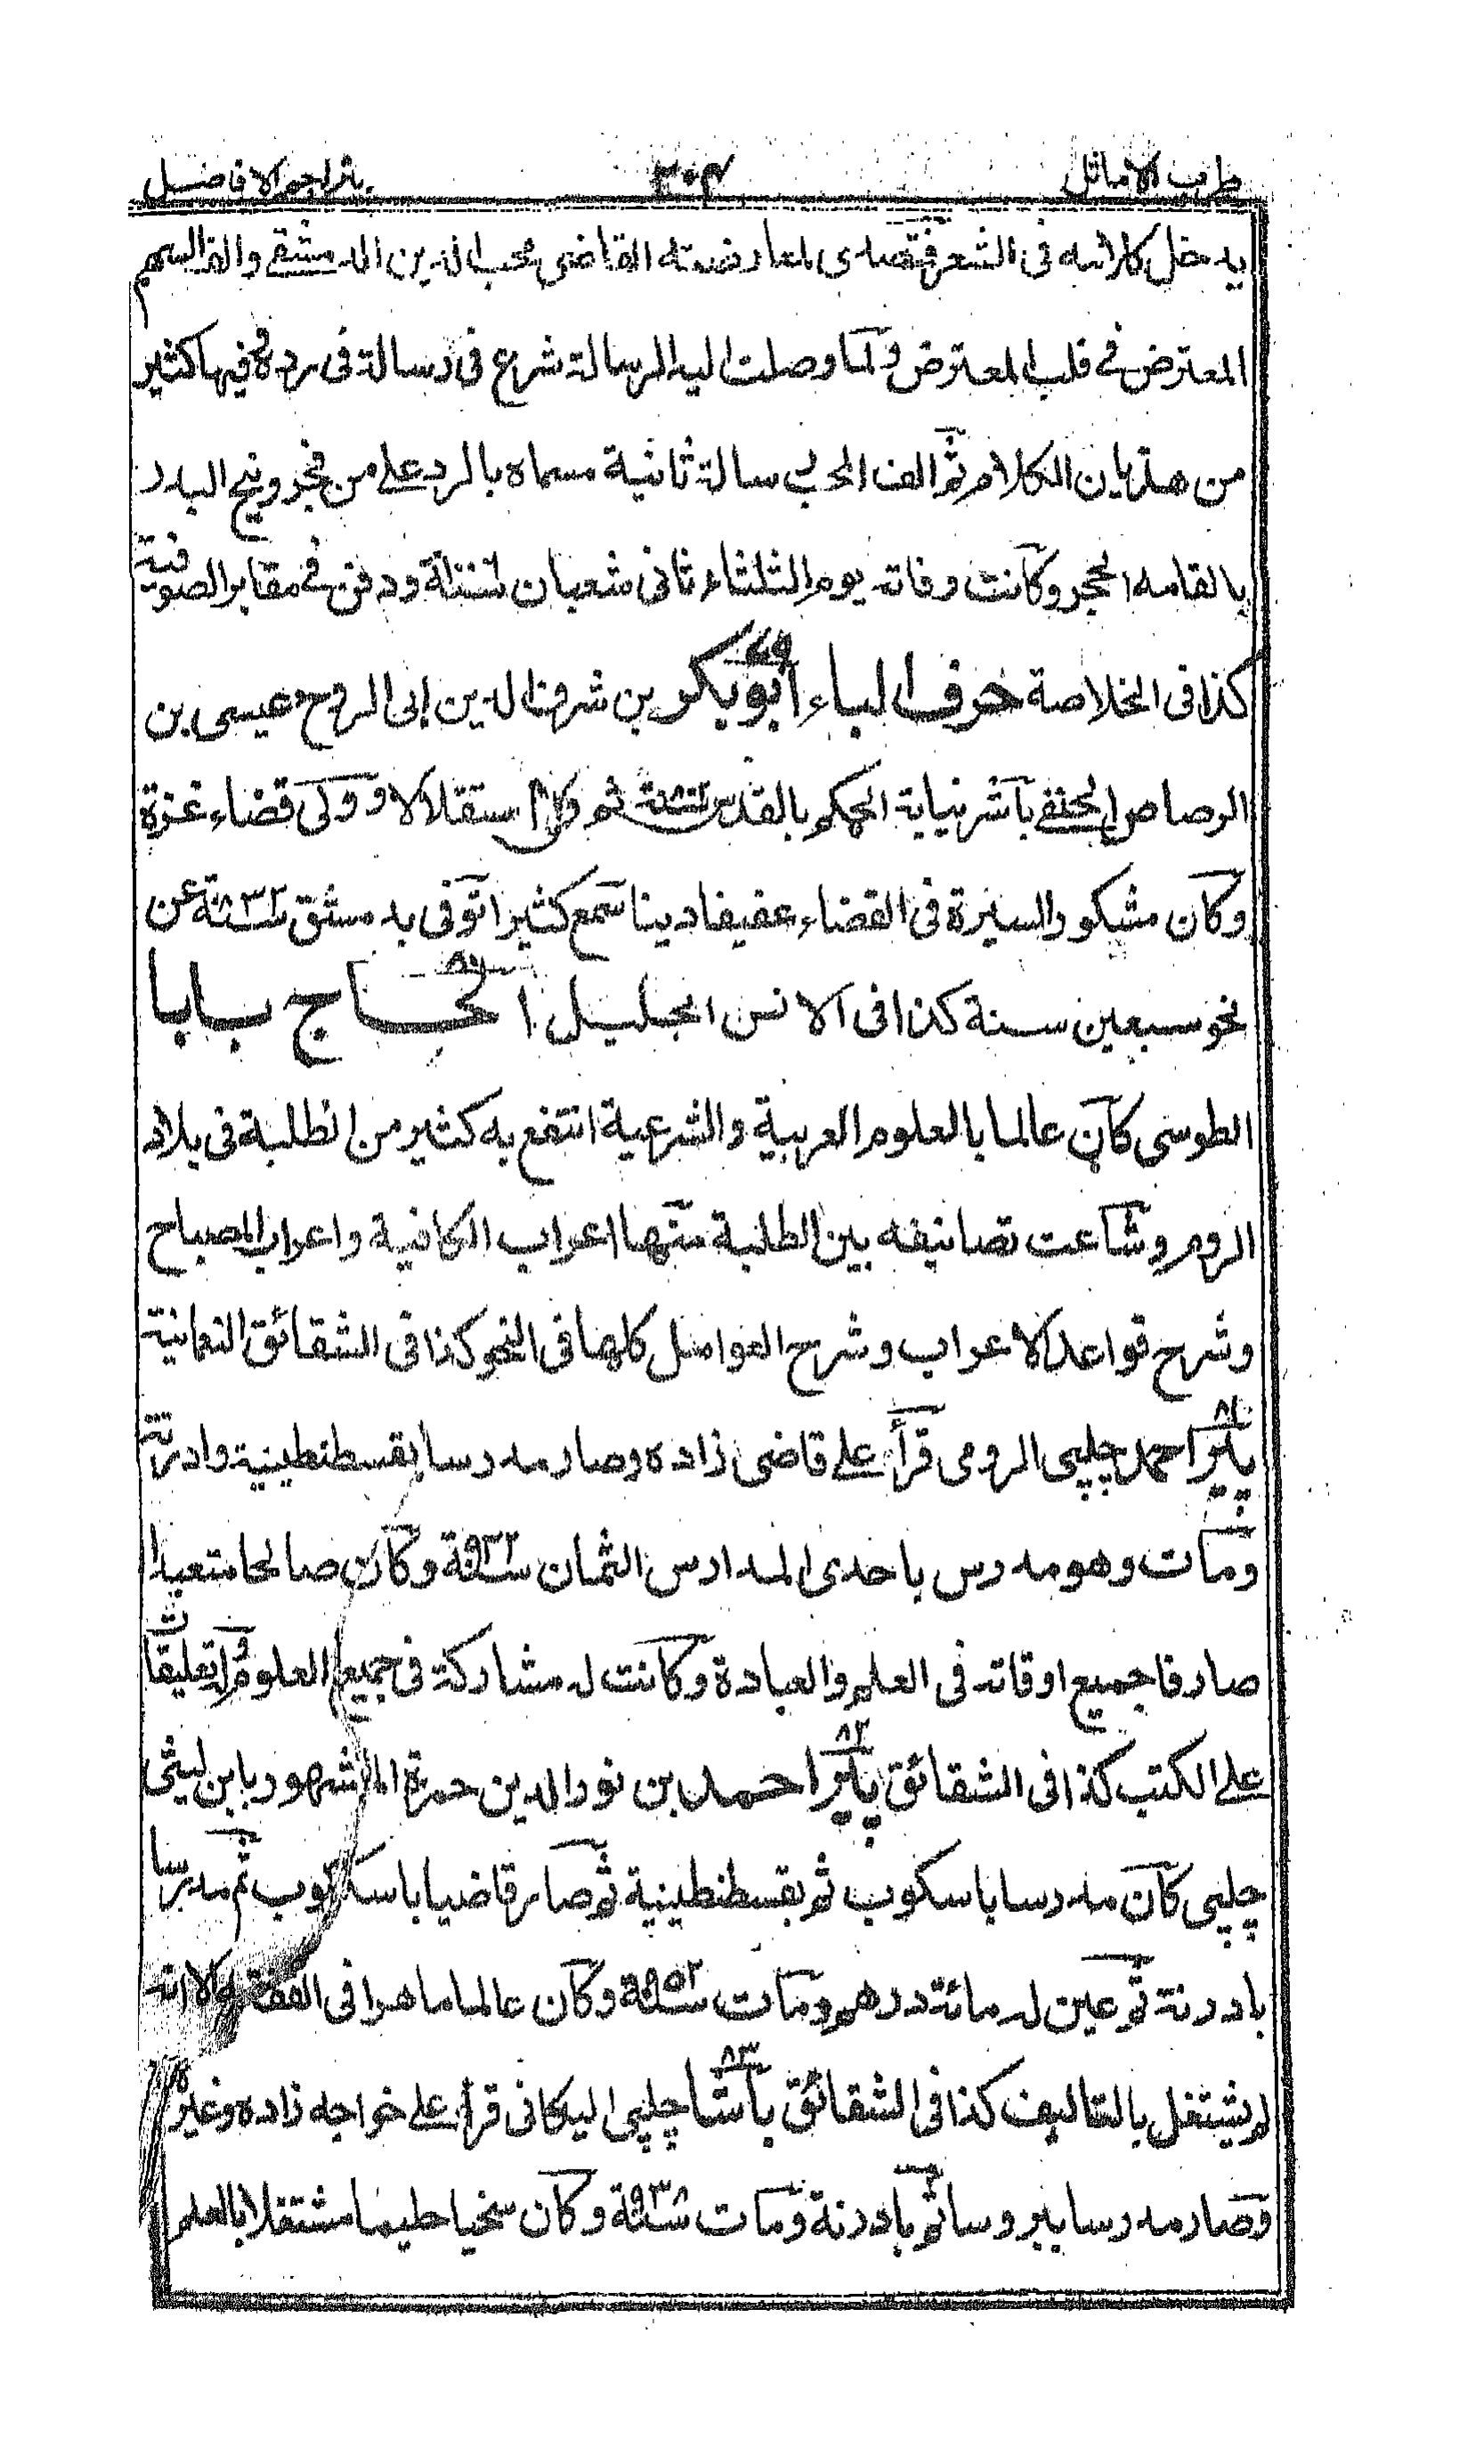 طرب الاماثل ٣٠٤ بتراجم الافاضل
يدخل كلامه فى الشعر فتصدى لمعارضته القاضى محب الدين الدمشقى والف السهم
المعترض فى قلب المعترض ولما وصلت اليه الرسالة شرع فى رسالة فى رده فيها كثير
من هذيان الكلام ثم الف المحبى رسالة ثانية مسماه بالرد على من فجر ونبح البدر
بالقامه الحجر وكانت وفاته يوم الثلثاء ثانى شعبان سنة ودفن فى مقابر الصوفية
كذا فى الخلاصة حرف الباء ٧٩ ابو بكر بن شرف الدين ابى الروح عيسى بن
الرصاص الحنفى باشر نيابة الحكم بالقدس سنة ثم ولاه استقلالا وولى قضاء غزة
وكان مشكور السيرة فى القضاء عفيفا دينا سمع كثيرا توفى بدمشق سنة ٨٣٢ عن
نحو سبعين سنة كذا فى الانس الجليل ٨٠ الحاج بابا
الطوسى كان عالما بالعلوم العربية والشرعية انتفع به كثير من الطلبة فى بلاد
الروم وشاعت تصانيفه بين الطلبة منها اعراب الكافية واعراب المصباح
وشرح قواعد الاعراب وشرح العوامل كلها فى النحو كذا فى الشقائق النعمانية
٨١ پير احمد چلپى الرومى قرأ على قاضى زاده وصار مدرسا بقسطنطينية وادرنة
ومات وهو مدرس باحدى المدارس الثمان سنة ٩٣٢ وكان صالحا متعبدا
صارفا جميع اوقاته فى العلم والعبادة وكانت له مشاركة فى جميع العلوم وله تعليقات
على الكتب كذا فى الشقائق ٨٢ پير احمد بن نور الدين حمزة المشهور بابن ليثى
چلپى كان مدرسا باسكوب ثم بقسطنطينية ثم صار قاضيا باسكوب ثم مدرسا
بادرنة ثم عين له مائة درهم ومات سنة ٩٥٢ وكان عالما ماهرا فى الفقه الا انه
لم يشتغل بالتاليف كذا فى الشقائق ٨٣ باشا چلپى اليكانى قرأ على خواجه زاده وغيره
وصار مدرسا ببروسا ثم بادرنة ومات سنة ٩٣٨ وكان سخيا حليما مشتغلا بالعلم